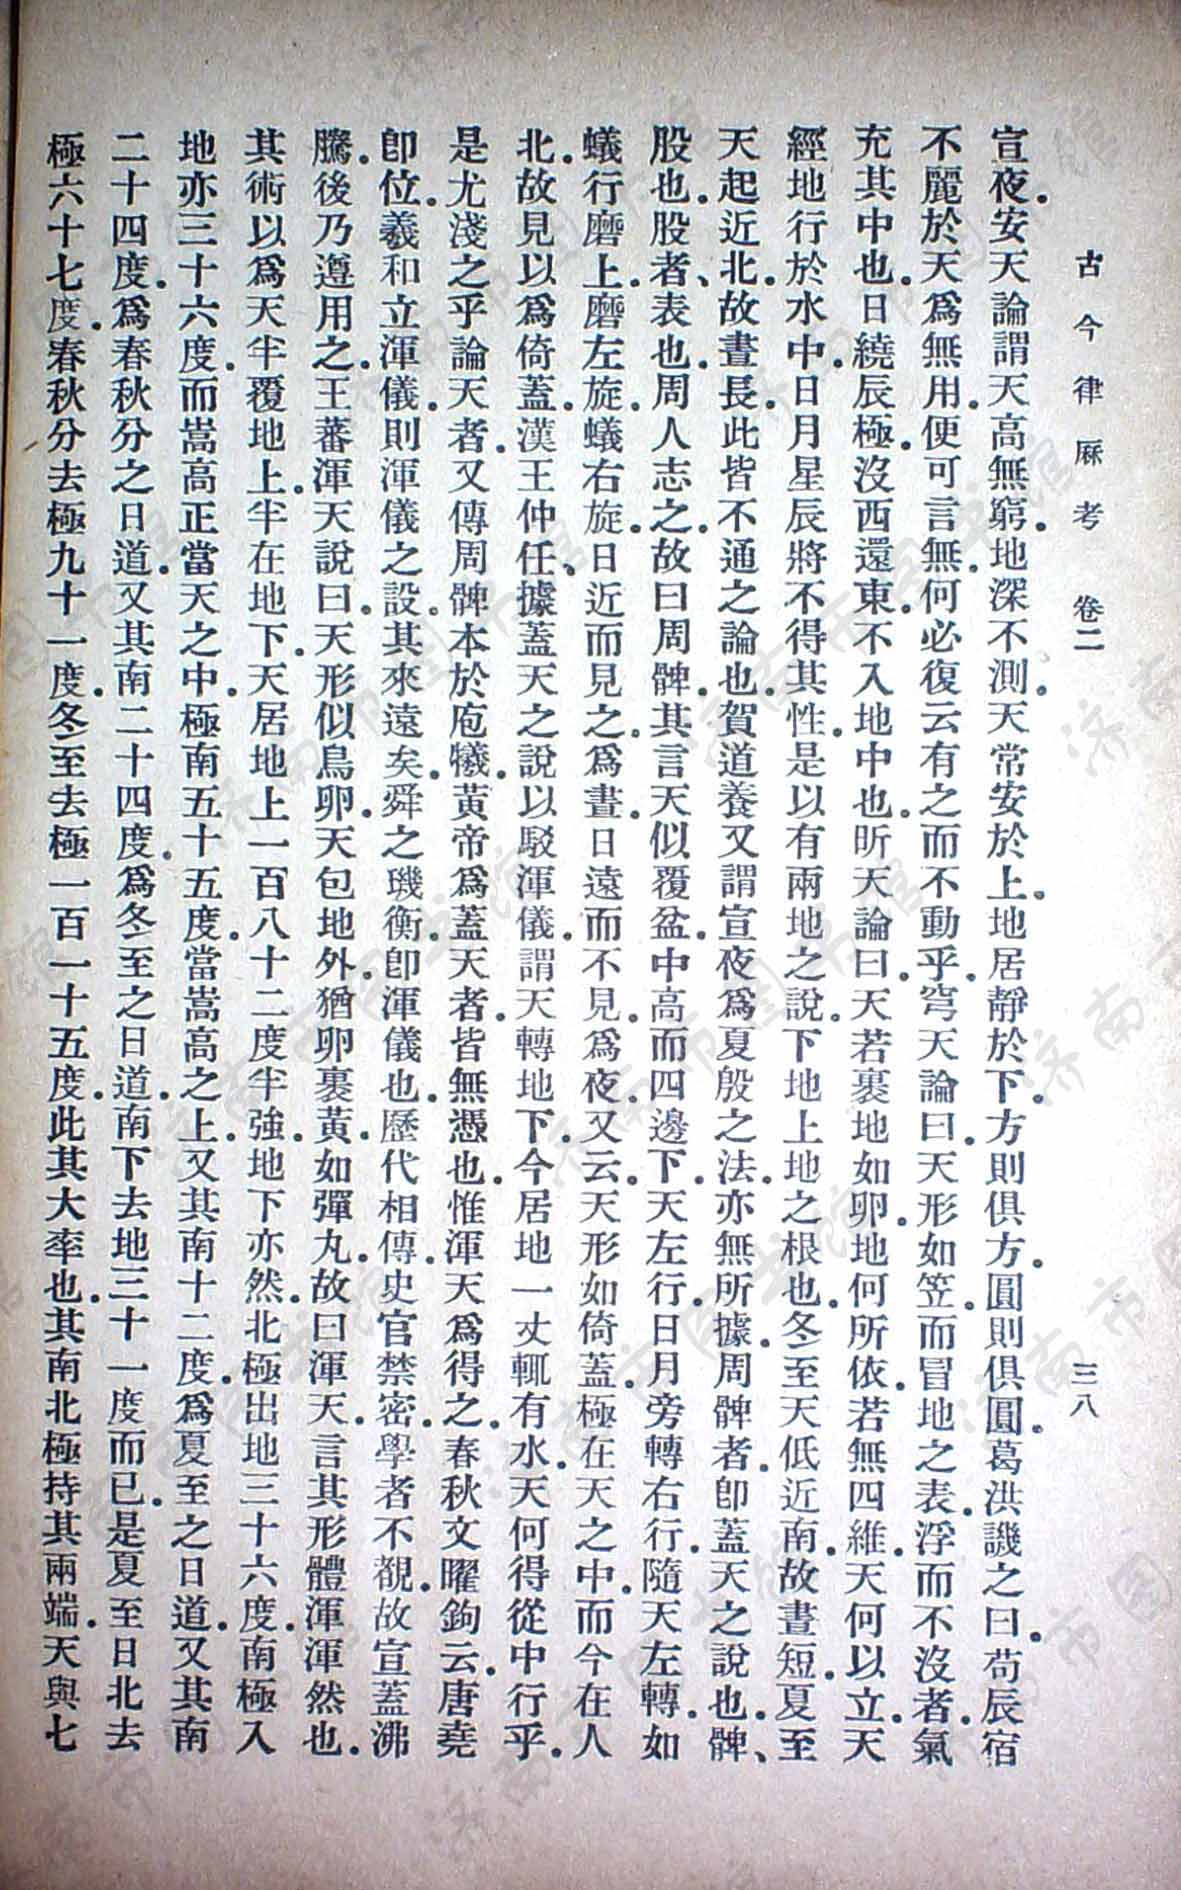 古今律厤考　卷二　三八
宣夜。安天論謂天高無窮。地深不測。天常安於上。地居靜於下。方則俱方。圓則俱圓。葛洪譏之曰。苟辰宿
不麗於天。爲無用。便可言無。何必復云有之而不動乎。穹天論曰。天形如笠。而冒地之表。浮而不沒者。氣
充其中也。日繞辰極。沒西還東。不入地中也。昕天論曰。天若裹地如卵。地何所依。若無四維。天何以立。天
經地行於水中。日月星辰將不得其性。是以有兩地之說。下地上地之根也。冬至天低近南。故晝短。夏至
天起近北。故晝長。此皆不通之論也。賀道養又謂宣夜爲夏殷之法。亦無所據。周髀者。卽蓋天之說也。髀、
股也。股者、表也。周人志之。故曰周髀。其言天似覆盆。中高而四邊下。天左行。日月旁轉右行。隨天左轉。如
蟻行磨上。磨左旋。蟻右旋。日近而見之。爲晝。日遠而不見。爲夜。又云。天形如倚蓋。極在天之中。而今在人
北。故見以爲倚蓋。漢王仲任、據蓋天之說以駁渾儀。謂天轉地下。今居地一丈輒有水。天何得從中行乎。
是尤淺之乎論天者。又傳周髀本於庖犧。黃帝爲蓋天者。皆無憑也。惟渾天爲得之。春秋文曜鉤云。唐堯
卽位。羲和立渾儀。則渾儀之設。其來遠矣。舜之璣衡。卽渾儀也。歷代相傳。史官禁密。學者不覩。故宣蓋沸
騰。後乃遵用之。王蕃渾天說曰。天形似鳥卵。天包地外。猶卵裹黃。如彈丸。故曰渾天。言其形體渾渾然也。
其術以爲天半覆地上。半在地下。天居地上一百八十二度半強。地下亦然。北極出地三十六度。南極入
地亦三十六度。而嵩高正當天之中。極南五十五度。當嵩高之上。又其南十二度。爲夏至之日道。又其南
二十四度。爲春秋分之日道。又其南二十四度。爲冬至之日道。南下去地三十一度而已。是夏至日北去
極六十七度。春秋分去極九十一度。冬至去極一百一十五度。此其大率也。其南北極持其兩端。天與七